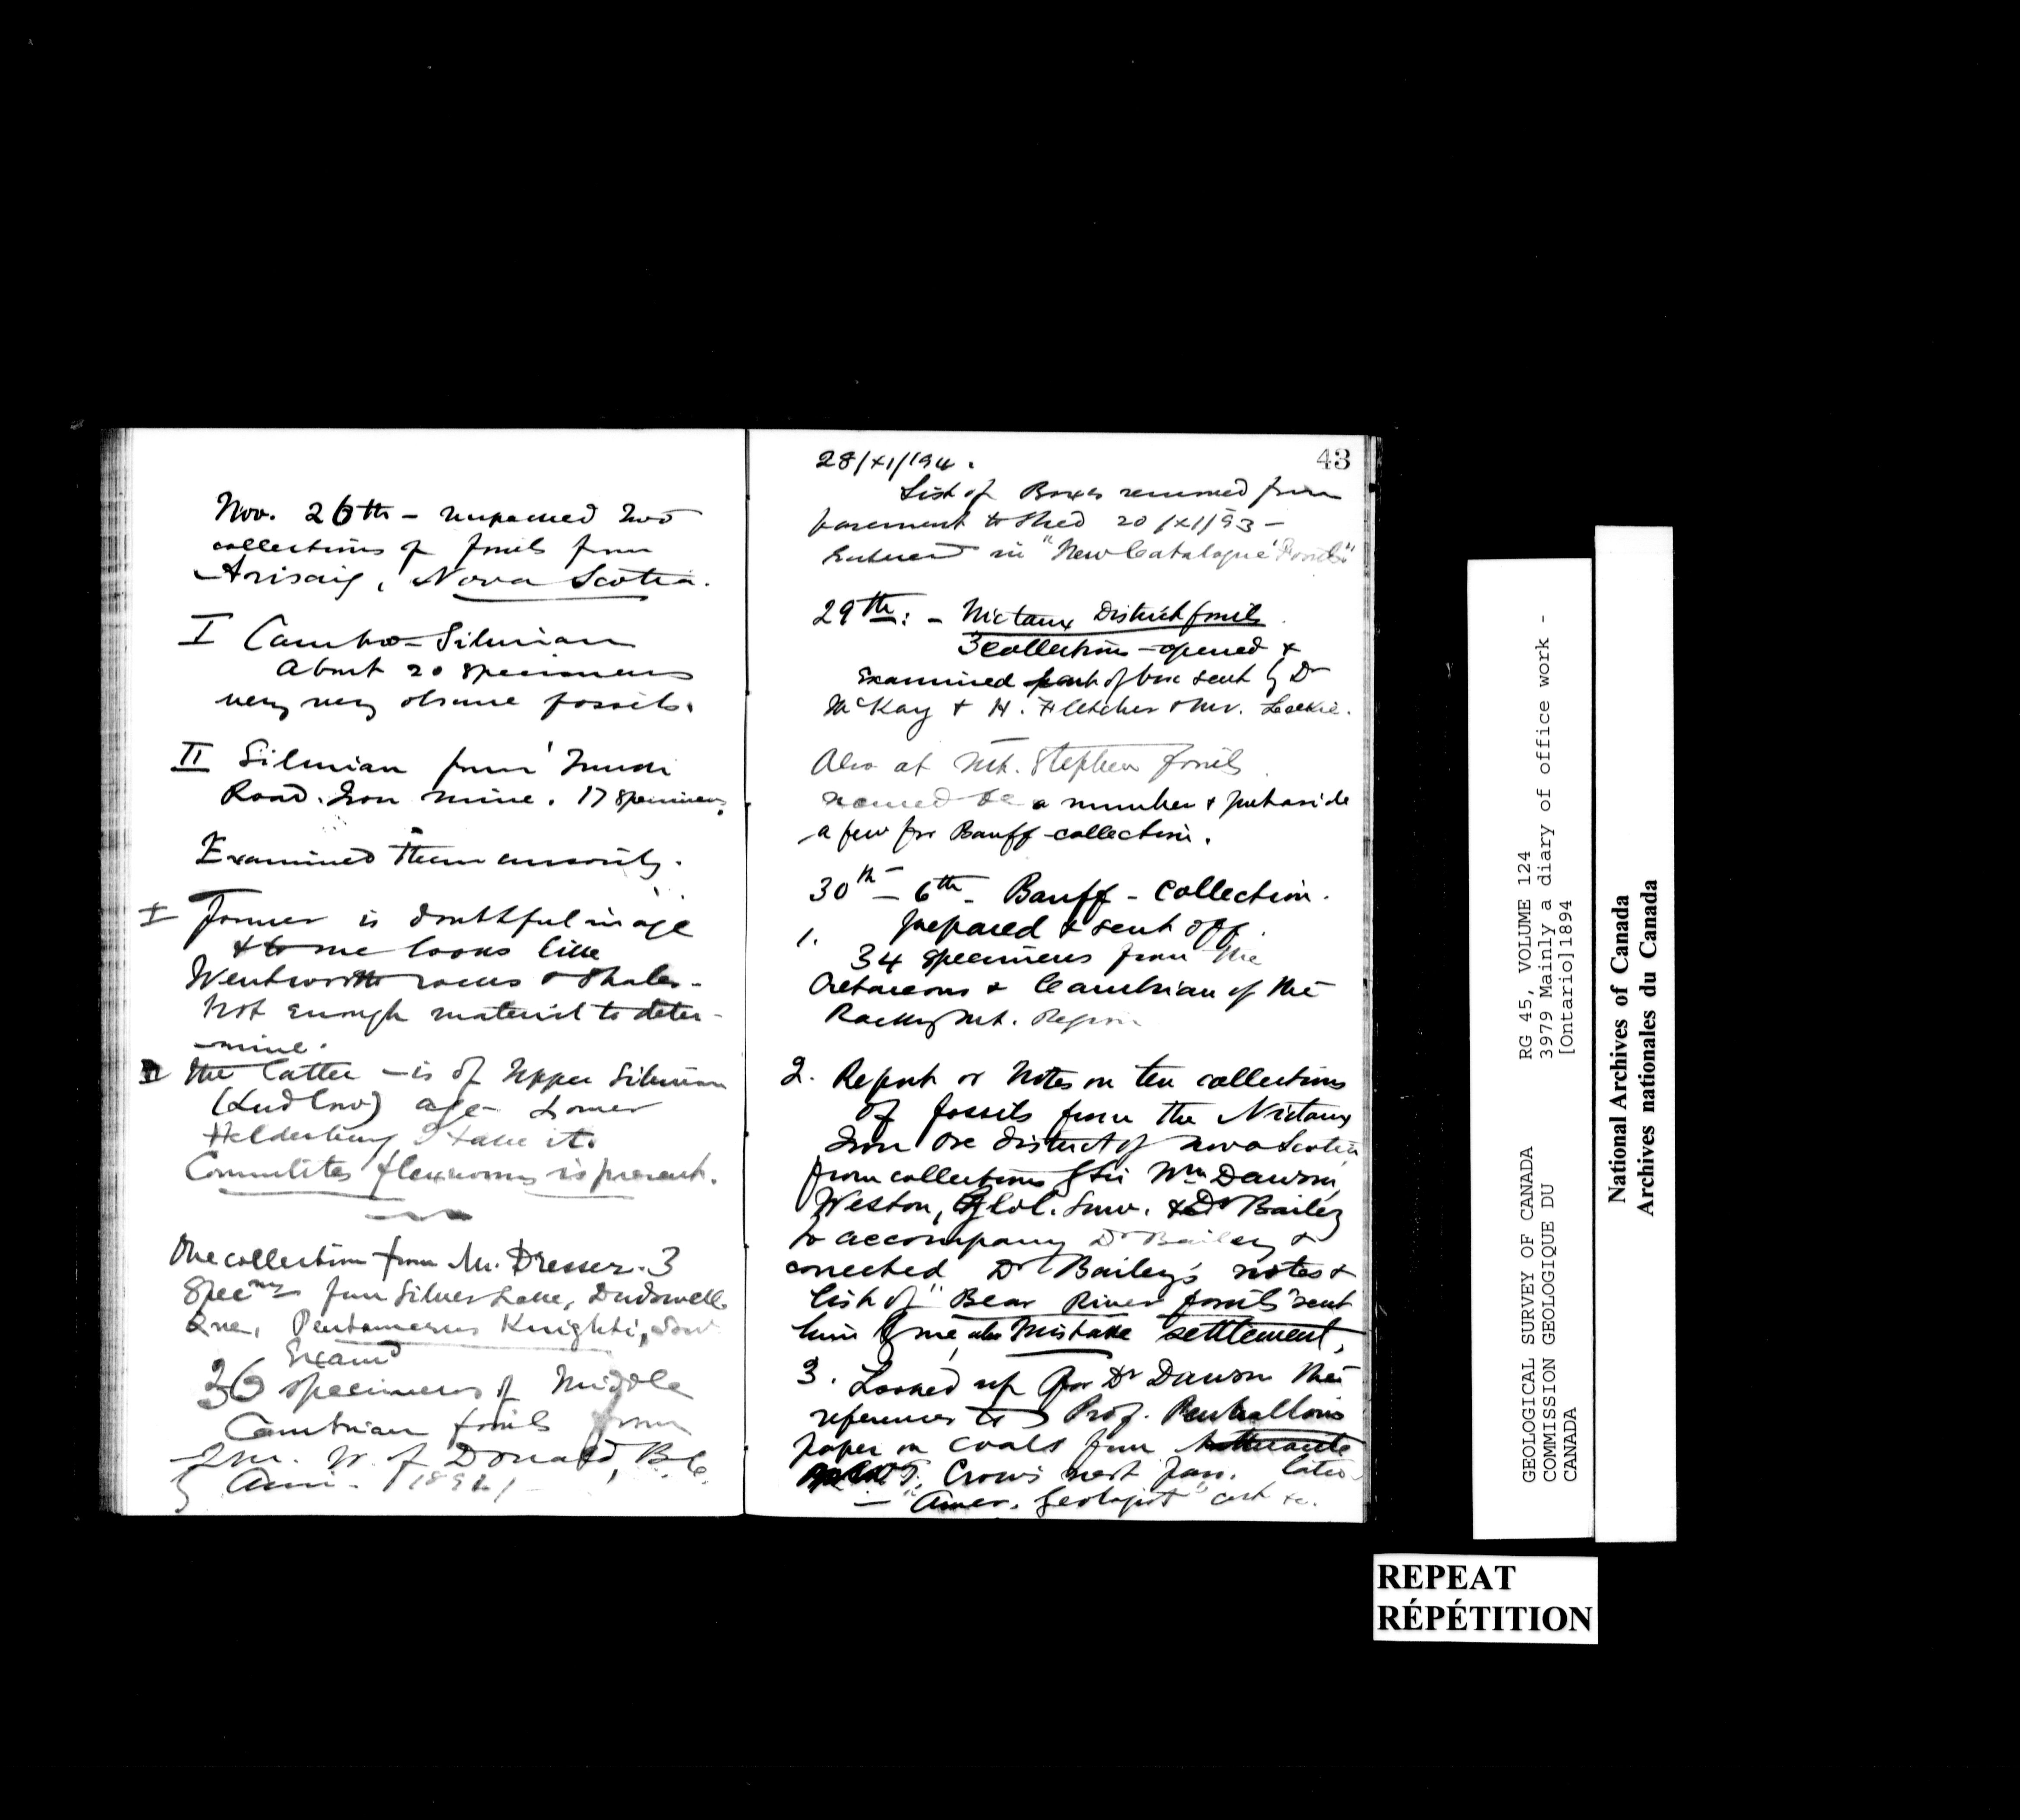 Nov. 26th – unpacked two
collections of fossils from
Arisaig, Nova Scotia.
I Cambro-Silurian
About 20 specimens
very very obscure fossils.
II Silurian from
Road. Iron mine. 17 specimens.
Examined them cursorily.
I Former is doubtful in age
& to me looks like
Wentworth rocks & shales –
Not enough material to deter-
mine.
II The latter – is of Upper Silurian
(Ludlow) age Lower
Helderberg I take it.
Cornulites flexuosus is present.
One collection from Mr. Dresser. 3
Specmns from Silver Lake, Dudswell.
Que, Pentamerus Knighti, Sow
Examd
36 specimens of Middle
Cambrian fossils from
2 m. W. of Donald, B.C.
Ami – 1891
43
28/XI/'94.
List of Boxes removed from
basement to Shed 20/XI/93 –
Entered in "New Catalogue Fossils"
29th: – Nictaux District fossils
3 collections – opened &
Examined part of box sent by Dr
McKay & H. Fletcher & Mr. Leckie.
Also at Mt. Stephen fossils
named a number & put aside
a few for Banff collection.
30th – 6th – Banff – Collection.
1. prepared & sent off.
34 specimens from the
Cretaceous & Cambrian of the
Rocky Mt. Region
2. Report or Notes on ten collections
of fossils from the Nictaux
Iron Ore district of Nova Scotia
from collections of Sir Wm Dawson,
Weston, Geol. Surv. & Dr Bailey
to accompany Dr Bailey &
corrected Dr Bailey's notes &
list of "Bear River fossils" sent
him by me, also Mistake settlement,
3. Looked up for Dr Dawson the
references to Prof. Penhallow's
paper on coals from
Crow's nest Pass.
– "Amer. Geologist" &c.
GEOLOGICAL SURVEY OF CANADA
COMMISSION GEOLOGIQUE DU
CANADA
RG 45, VOLUME 124
3979 Mainly a diary of office work -
[Ontario]1894
National Archives of Canada
Archives nationales du Canada
REPEAT
RÉPÉTITION